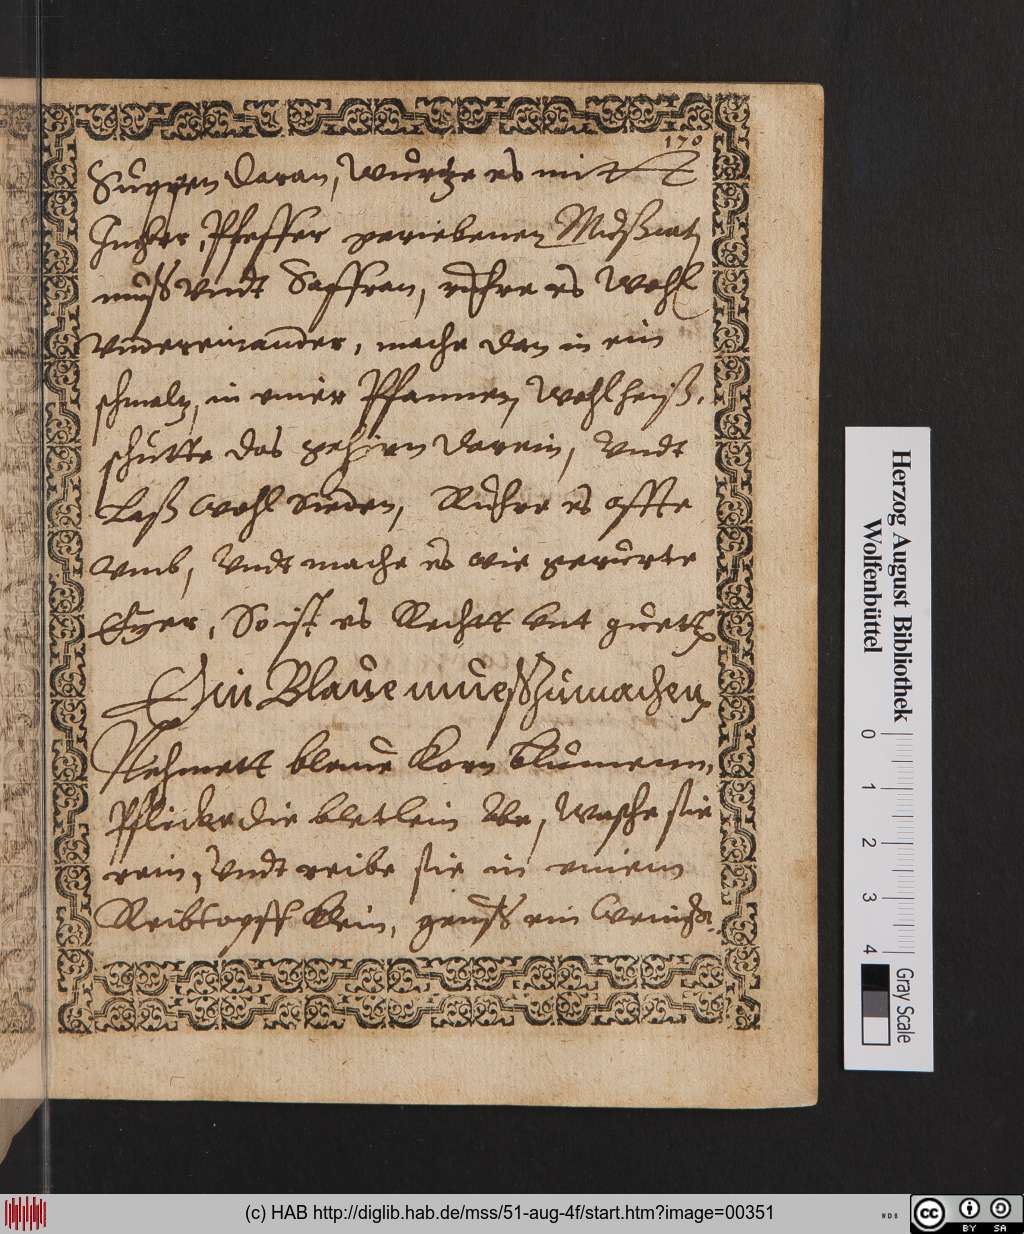 170
Suppen daran, Würtze es mitt
Ingber, Pfeffer geriebenen Mußcat
nuß Vndt Saffran, rühre es Wohl
Vndereinander, mache dan in ein
schmaltz, in einer Pfannen, Wohl heiß,
schutte das gehirn darein, Vndt
Laß Wohl Sieden, Rühre es offte
Vmb, Vndt mache es wie gerürte
Eyer, So ist es Recht vnt guett
Ein Blaue muesß zumachen
Nehmett blaue Korn blumenn,
Pflücke die bletlein Abe, Wasche sie
rein, Vndt reibe sie in einem
Reibtopff klein, geuß ein Wenig
Herzog August Bibliothek
Wolfenbüttel
0 1 2 3 4
Gray Scale
(c) HAB http://diglib.hab.de/mss/51-aug-4f/start.htm?image=00351
WDB
cc BY SA